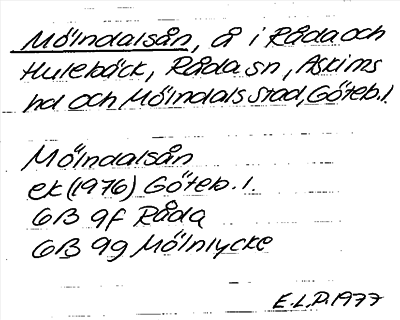 Mölndalsån, å i Råda och
Hulebäck, Råda sn, Askims
hd och Mölndals stad, Göteb. l.
Mölndalsån
ek (1976) Göteb. l.
6B 9f Råda
6B 9g Mölnlycke
E.L.P. 1977